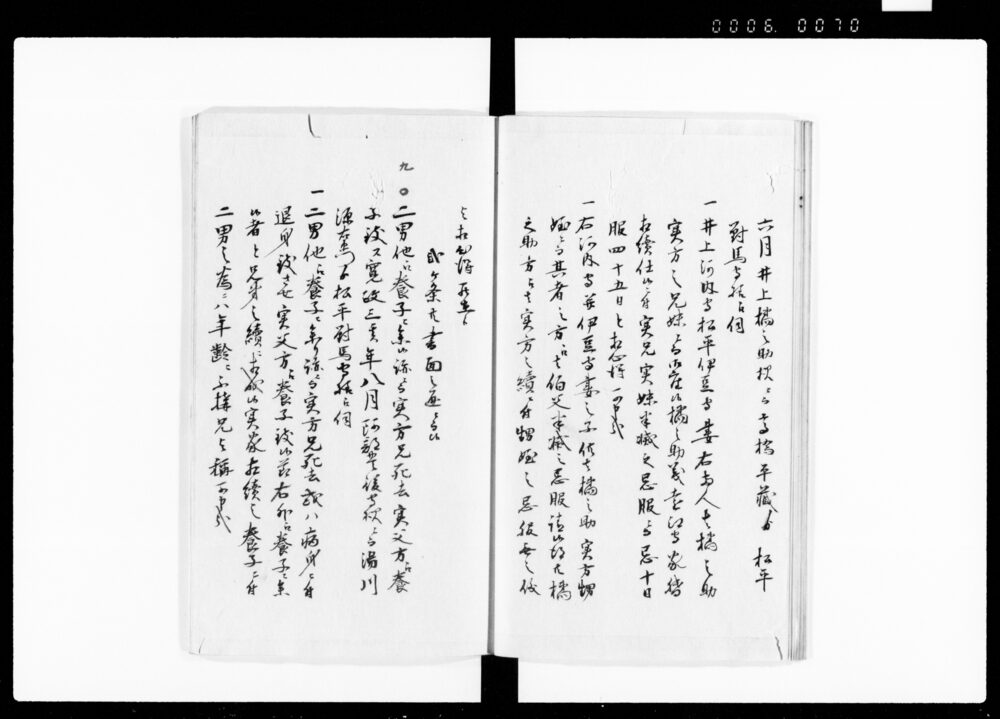 0006.0070
六月井上橘之助様より高橋平蔵を以松平
對馬守様江伺
一井上河内守松平伊豆守妻右両人者橘之助
実方之兄妹ニ而御座候橘之助義
相續仕候ニ付実兄実妹半減之忌服ニ而忌十日
服四十五日と相心得可申哉
一右河内守并伊豆守妻之子供者橘之助実方甥
姪ニ而其者之方江者伯父半減之忌服請候得共橘
之助方江者実方之續ニ付甥姪之忌服無之儀
と相心得
弐ケ条共書面之通ニ而候
九〇二男他江養子ニ参候跡ニ而実方兄死去実父方江養
子致ス寛政三亥年八月阿部 後守様より湯川
源右衛 松平對馬守様江伺
一二男他江養子ニ参り跡ニ而実方兄死去或ハ病身ニ付
退身致させ実父方江養子致候節右外江養子ニ参
候者と兄弟之續ニ 候実家相續之養子ニ付
二男之為ニハ年齢ニ不構兄と稱可申哉